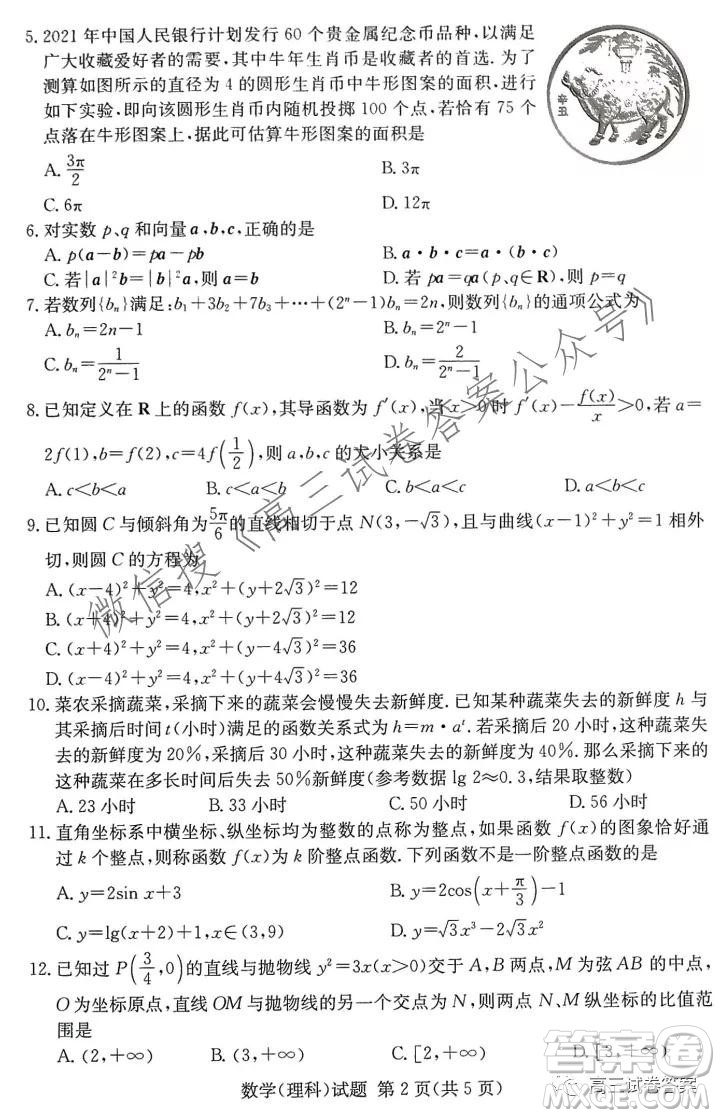 5. 2021 年中国人民银行计划发行 60 个贵金属纪念币品种,以满足
广大收藏爱好者的需要,其中牛年生肖币是收藏者的首选. 为了
测算如图所示的直径为 4 的圆形生肖币中牛形图案的面积,进行
如下实验,即向该圆形生肖币内随机投掷 100 个点,若恰有 75 个
点落在牛形图案上,据此可估算牛形图案的面积是
辛丑
A. 3π/2 B. 3π
C. 6π D. 12π
6. 对实数 p、q 和向量 a,b,c,正确的是
A. p(a-b)=pa-pb B. a·b·c=a·(b·c)
C. 若|a|²b=|b|²a,则 a=b D. 若 pa=qa(p、q∈R),则 p=q
7. 若数列{bₙ}满足:b₁+3b₂+7b₃+…+(2ⁿ-1)bₙ=2n,则数列{bₙ}的通项公式为
A. bₙ=2n-1 B. bₙ
C. bₙ=1/(2ⁿ-1) D. bₙ=2/(2ⁿ-1)
8. 已知定义在 R 上的函数 f(x),其导函数为 f′(x),当 x>0 时 f′(x)-f(x)/x>0,若 a=
2f(1),b=f(2),c=4f(1/2),则 a、b、c 的大小关系是
A. c<b<a B. c<a<b C. b<a<c D. a<b<c
9. 已知圆 C 与倾斜角为 5π/6 的直线相切于点 N(3,-√3),且与曲线(x-1)²+y²=1 相外
切,则圆 C 的方程为
A. (x-4)²+y²=4,x²+(y+2√3)²=12
B. (x+4)²+y²=4,x²+(y-2√3)²=12
C. (x+4)²+y²=4,x²+(y-4√3)²=36
D. (x-4)²+y²=4,x²+(y+4√3)²=36
10. 菜农采摘蔬菜,采摘下来的蔬菜会慢慢失去新鲜度. 已知某种蔬菜失去的新鲜度 h 与
其采摘后时间 t(小时)满足的函数关系式为 h=m·aᵗ. 若采摘后 20 小时,这种蔬菜失
去的新鲜度为 20%,采摘后 30 小时,这种蔬菜失去的新鲜度为 40%. 那么采摘下来的
这种蔬菜在多长时间后失去 50%新鲜度(参考数据 lg 2≈0.3,结果取整数)
A. 23 小时 B. 33 小时 C. 50 小时 D. 56 小时
11. 直角坐标系中横坐标、纵坐标均为整数的点称为整点,如果函数 f(x)的图象恰好通
过 k 个整点,则称函数 f(x)为 k 阶整点函数. 下列函数不是一阶整点函数的是
A. y=2sin x+3 B. y=2cos(x+π/3)-1
C. y=lg(x+2)+1,x∈(3,9) D. y=√3x³-2√3x
12. 已知过 P(3/4,0)的直线与抛物线 y²=3x(x>0)交于 A、B 两点,M 为弦 AB 的中点,
O 为坐标原点,直线 OM 与抛物线的另一个交点为 N,则两点 N、M 纵坐标的比值范
围是
A. (2,+∞) B. (3,+∞) C. [2,+∞) D. [3,+∞)
数学(理科)试题 第 2 页(共 5 页)
微信搜《高三试卷答案公众号》
答案卷
高三试卷答案